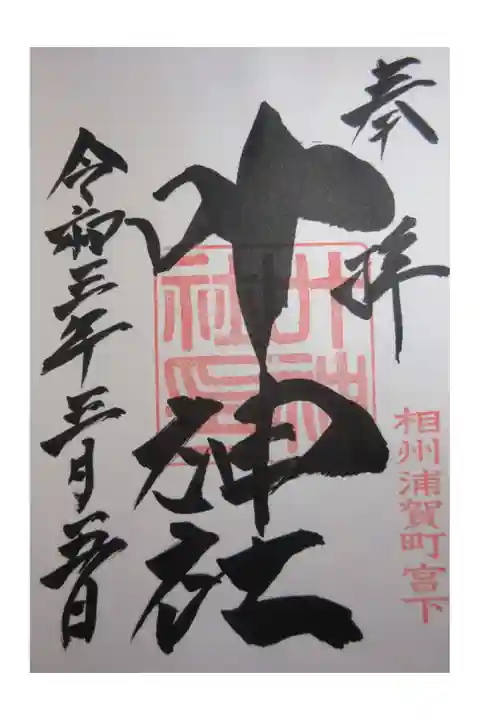 奉拝
相州浦賀町宮下
叶神社
叶神
社印
令和三年三月五日